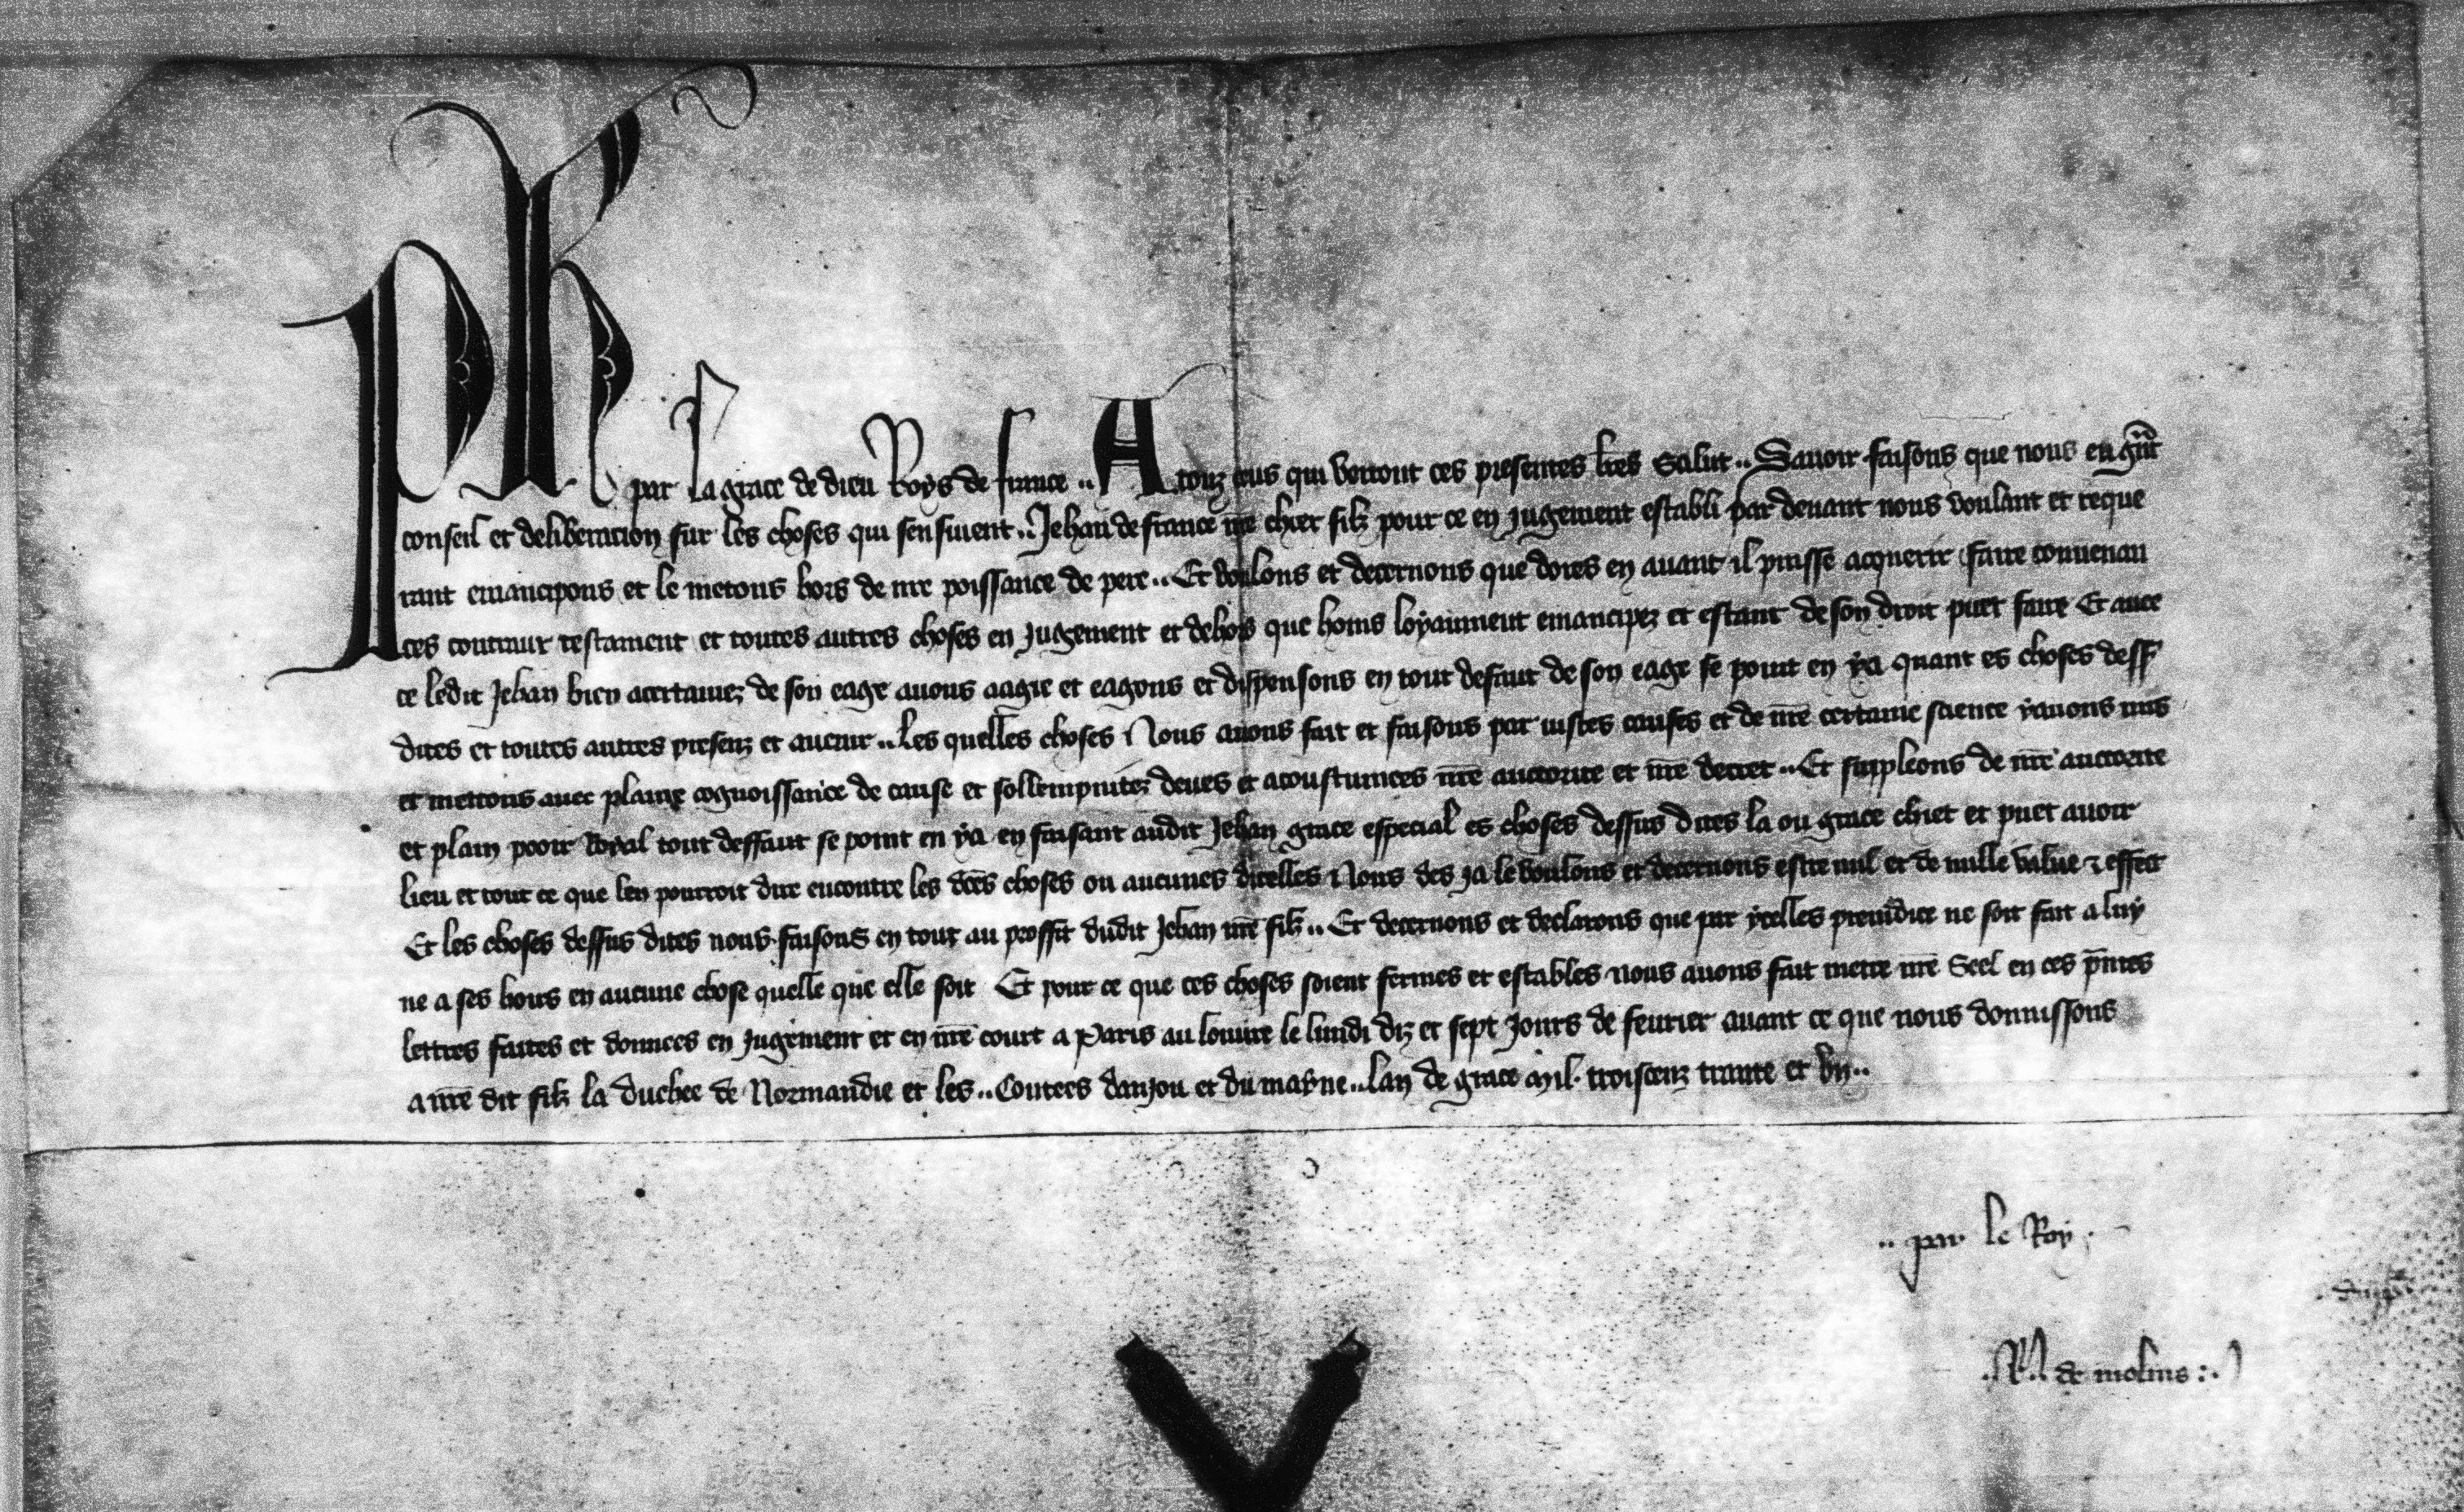 Ph par la grace de dieu Roys de france .. A touz ceus qui verront ces presentes lres Salut .. Savoir faisons que nous en grant
conseil et deliberacion sur les choses qui sensuient .. Jehan de france nre chier filz pour ce en jugement establi par devant nous voulant et reque
rant emancipons et le metons hors de nre poissance de pere .. Et voulons et decernons que dores en avant il puisse acquerir faire convenan
ces contraut testament et toutes autres choses en jugement et dehors que homs loyaument emancipez et estant de son droit puet faire Et avec
ce ledit Jehan bien acertainez de son eage avons aagie et eagons et dispensons en tout defaut de son eage se point en ya quant es choses dess
dites et toutes autres presenz et avenir .. Les quelles choses Nous avons fait et faisons par iustes causes et de nre certaine science yavons mis
et mettons avec plaine cognoissance de cause et sollempnitez deues et acoustumees nre auctorite et nre decret .. Et suppleons de nre auctorite
et plain pooir Royal tout deffaut se point en ya en faisant audit Jehan grace especial es choses dessus dites la ou grace chiet et puet avoir
lieu et tout ce que len pourroit dire encontre les dces choses ou aucunes dicelles Nous des ja le voulons et decernons estre nul et de nulle value & effect
Et les choses dessus dites nous faisons en tout au proffit dudit Jehan nre filz .. Et decernons et declarons que par ycelles preiudice ne soit fait a luy
ne a ses hoirs en aucune chose quelle que elle soit Et pour ce que ces choses soient fermes et estables nous avons fait mettre nre Seel en ces pntes
lettres faites et donnees en jugement et en nre court a Paris au louvre le lundi diz et sept jours de fevrier avant ce que nous donnissons
a nre dit filz la duchee de Normandie et les .. Contees danjou et du mayne .. lan de grace mil troiscenz trante et un ..
.. par le Roy .
.M. de molins :.